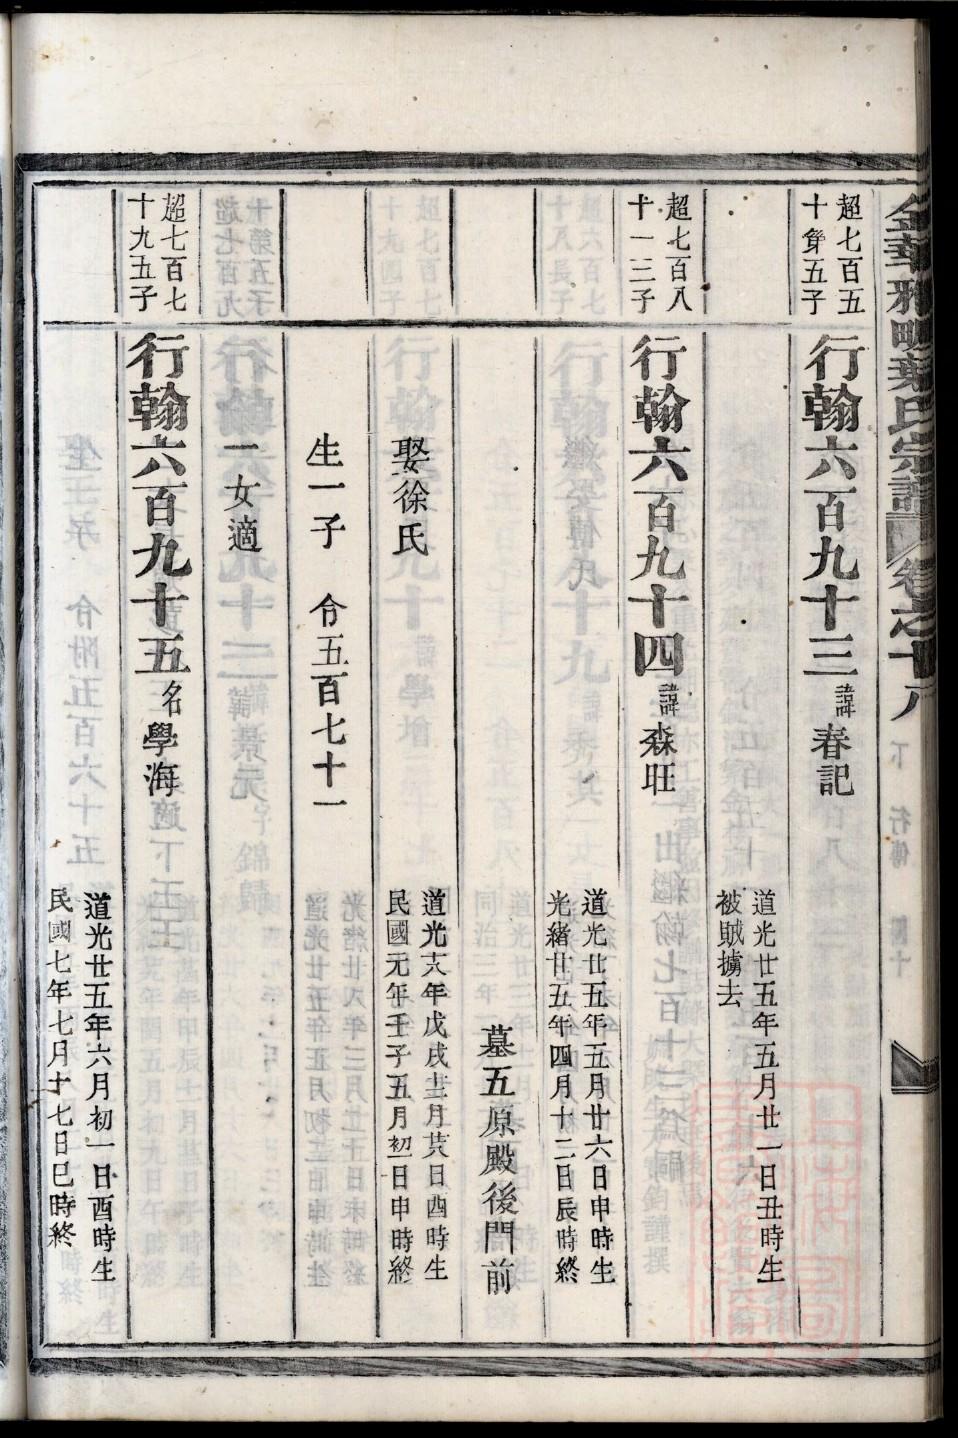 金華雅畈葉氏宗譜 卷之十八 下 行傳
超七百五
十第五子
行翰六百九十三 諱春記
道光廿五年五月廿一日丑時生
被賊擄去
超七百八
十一三子
行翰六百九十四 諱森旺
道光廿五年五月廿六日申時生
光緒廿五年四月十二日辰時終
墓五原殿後門前
娶徐氏
道光十八年戊戌十二月廿八日酉時生
民國元年壬子五月初一日申時終
生一子 令五百七十一
一女適
超七百七
十九五子
行翰六百九十五 名學海
道光廿五年六月初一日酉時生
民國七年七月十七日巳時終